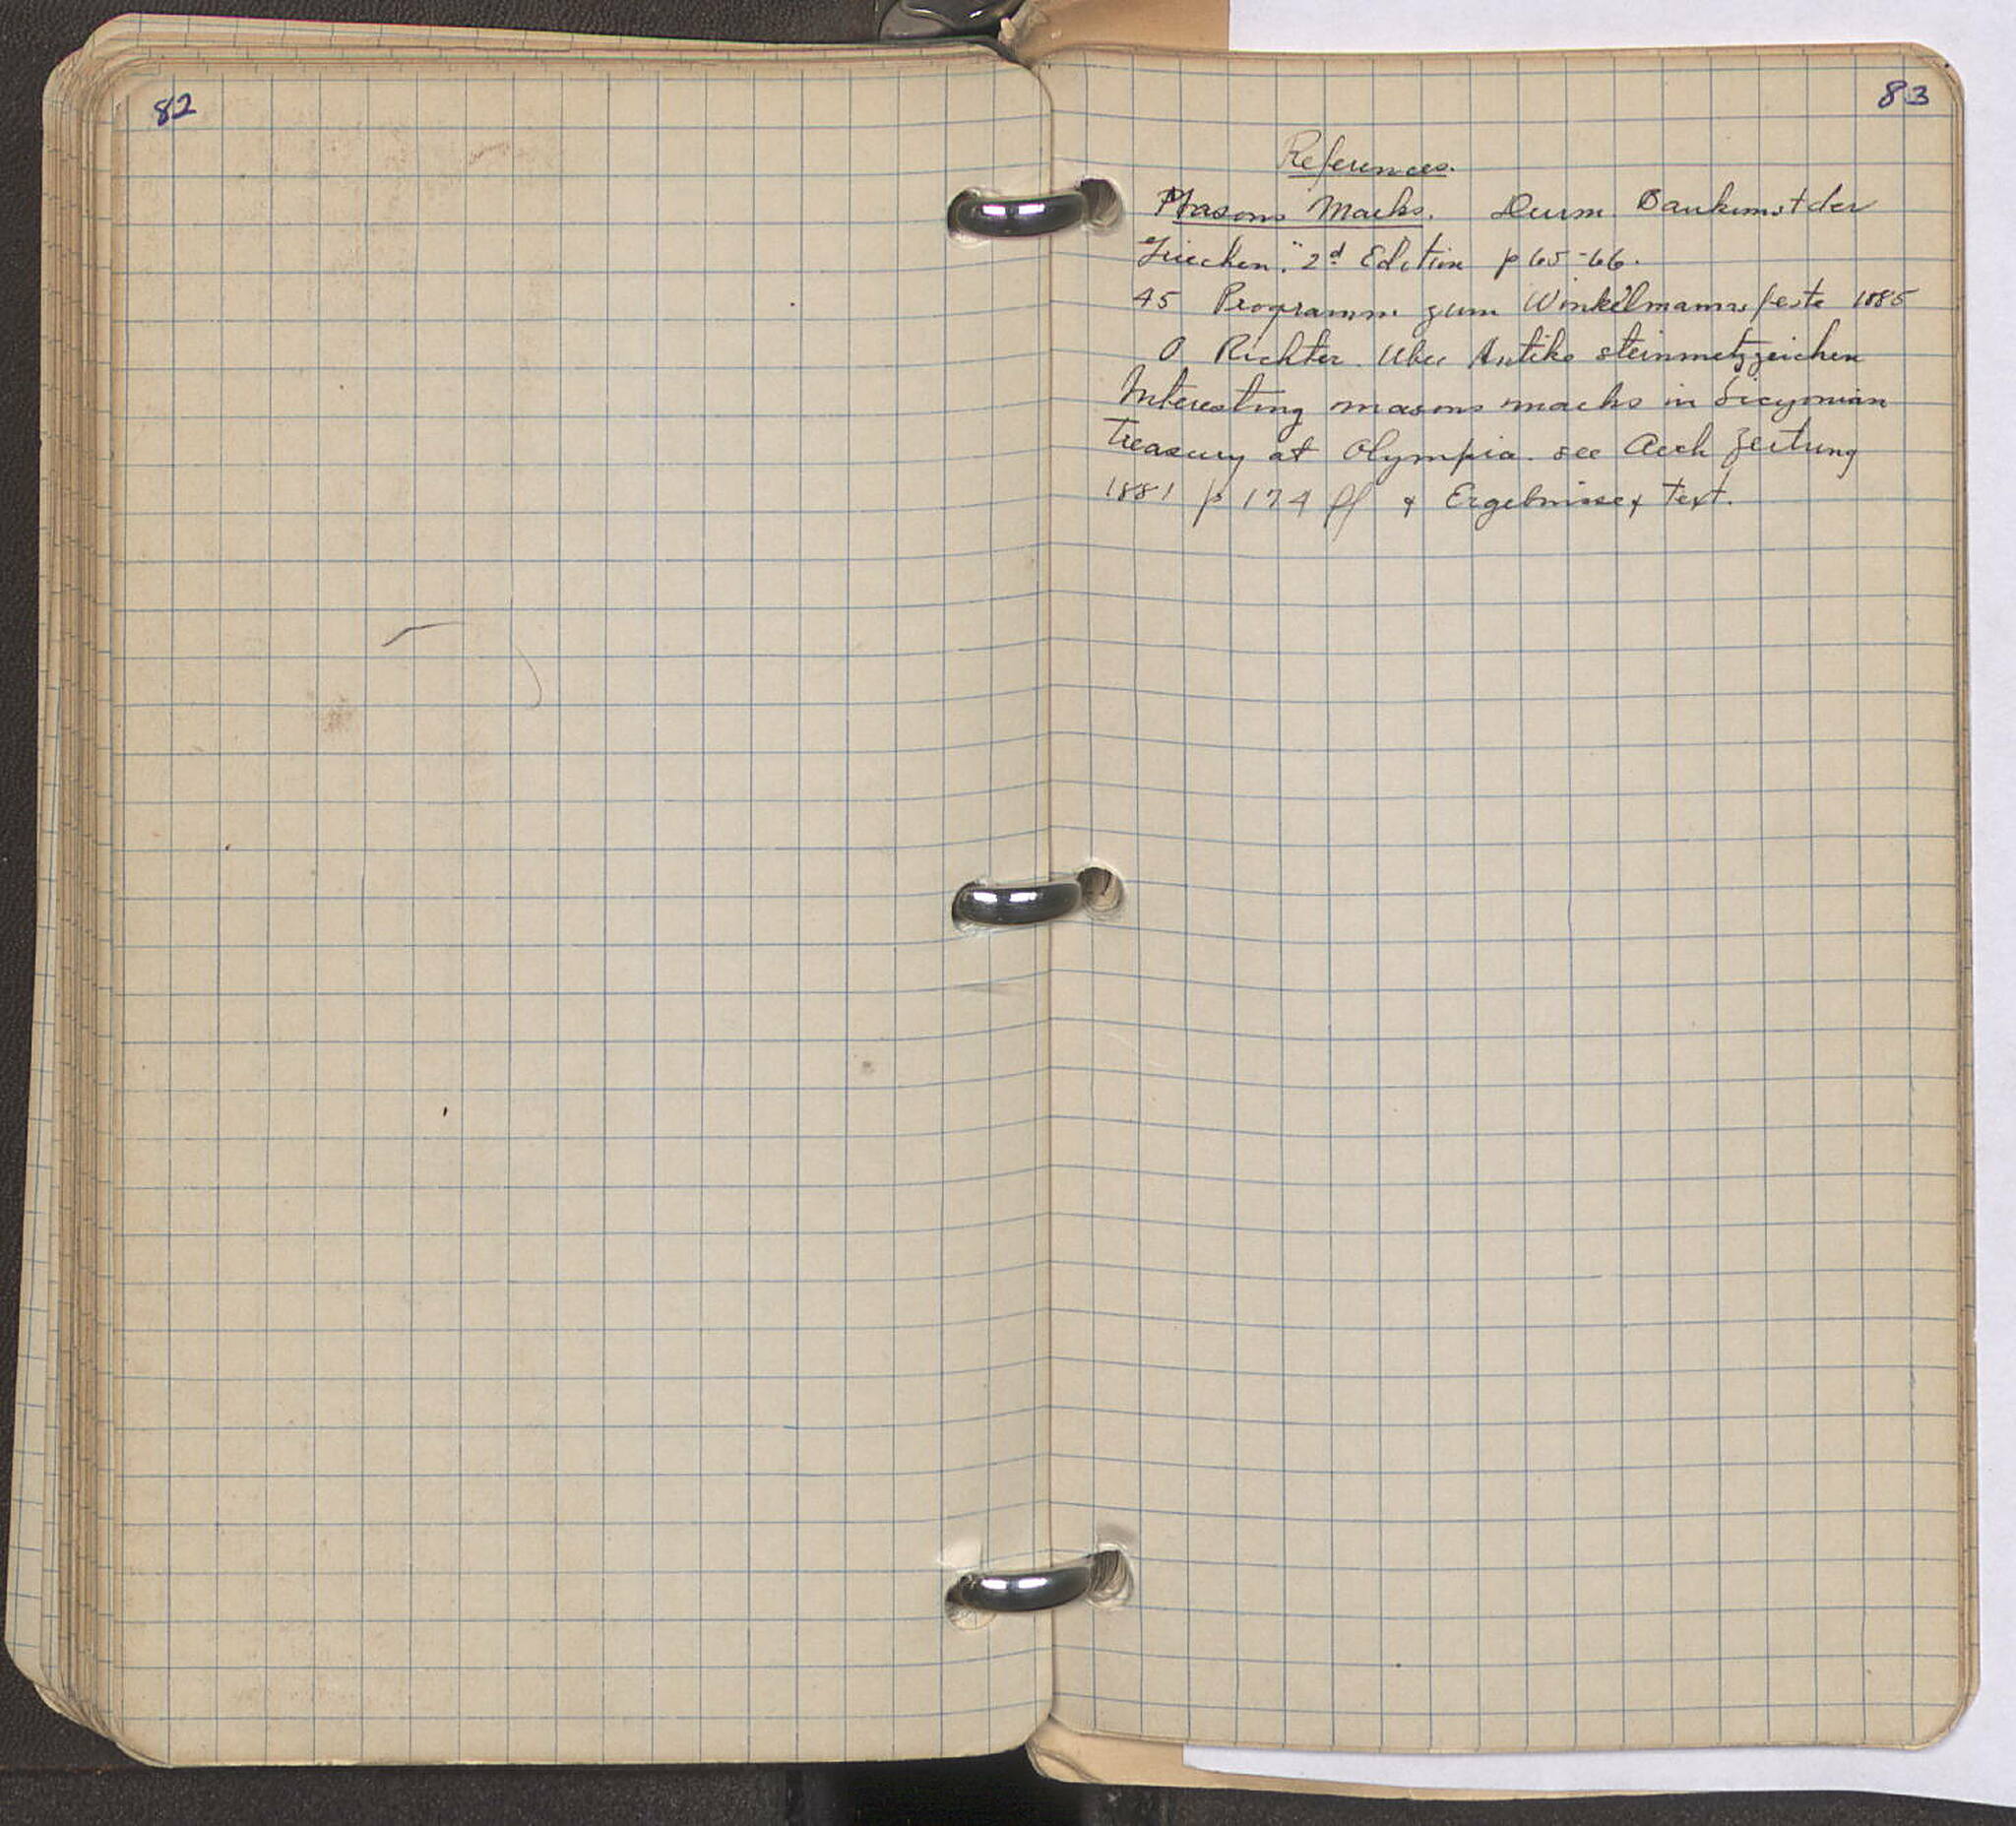 82
83
References.
Masons Marks. Durm. Baukunst der
Griechen." 2d Edition p 65-66.
45 Programm zum Winkelmannsfeste 1885
O Richter. Uber Antike steinmetzzeichen
Interesting masons marks in Sicyonian
Treasury at Olympia. see Arch Zeitung
1881 p 174 ff & Ergebnisse, Text.